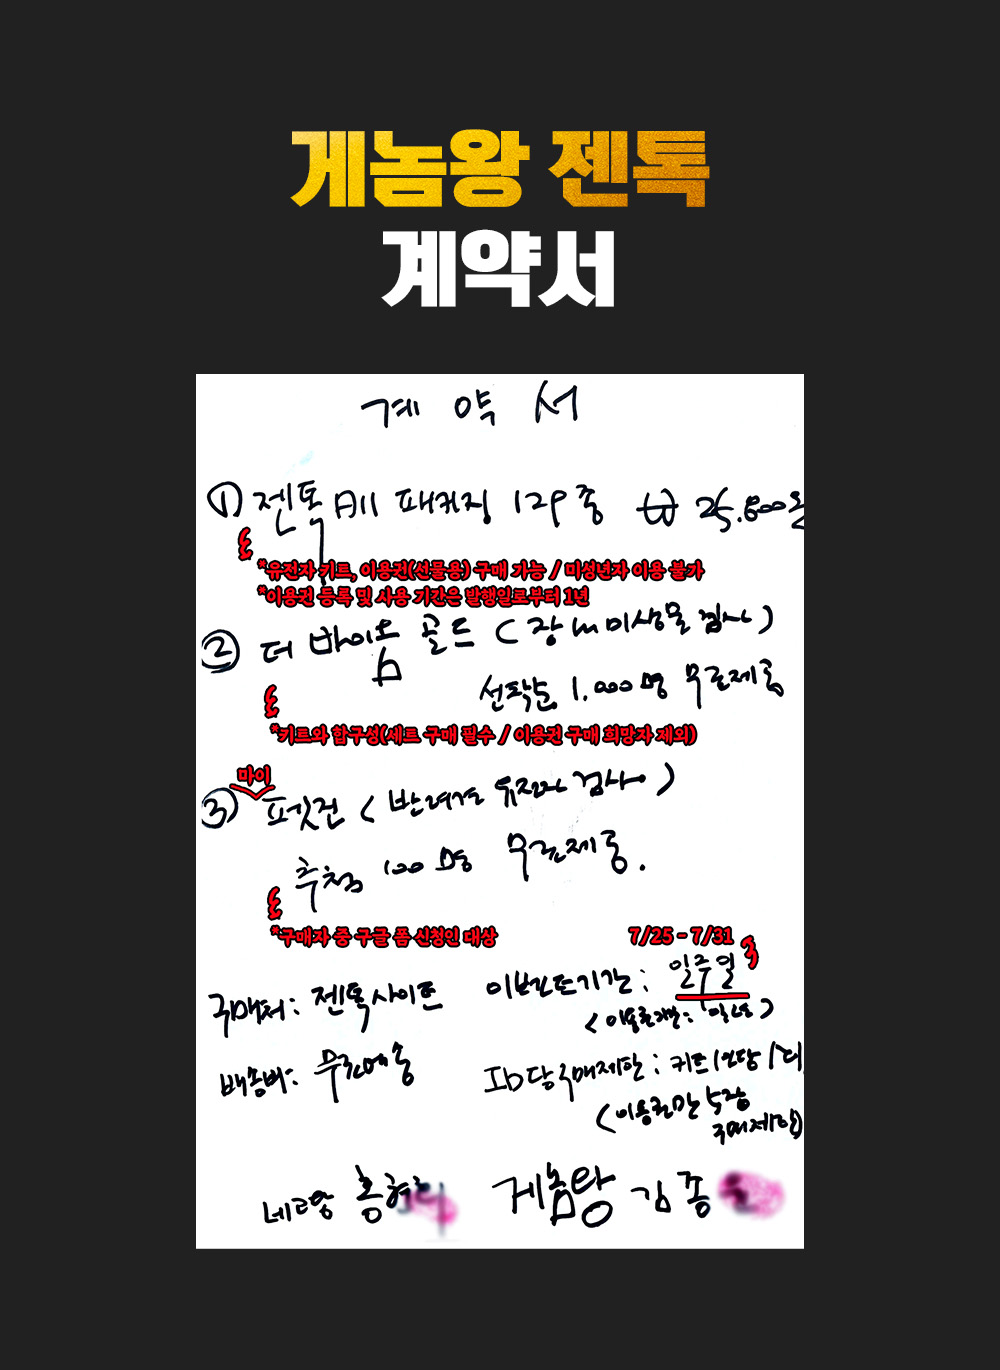 게놈왕 젠톡
계약서
계약서
① 젠톡 All 패키징 129종 ₩ 25.800원
*유전자 키트, 이용권(선물용) 구매 가능 / 미성년자 이용 불가
*이용권 등록 및 사용 기간은 발행일로부터 1년
② 더 바이옴 골드 (장내 미생물 검사)
선착순 1,000명 무료제공
*키트와 합구성(세트 구매 필수 / 이용권 구매 희망자 제외)
마이
③ 펫진 (반려견 유전자 검사)
추첨 100명 무료제공.
*구매자 중 구글 폼 신청인 대상
7/25 - 7/31
구매처: 젠톡사이트
이벤트기간: 일주일
배송비: 무료배송
ID당 구매제한: 키트 1인당 1대
(이용권만 5장
구매제한)
네고왕 홍현희
게놈왕 김종